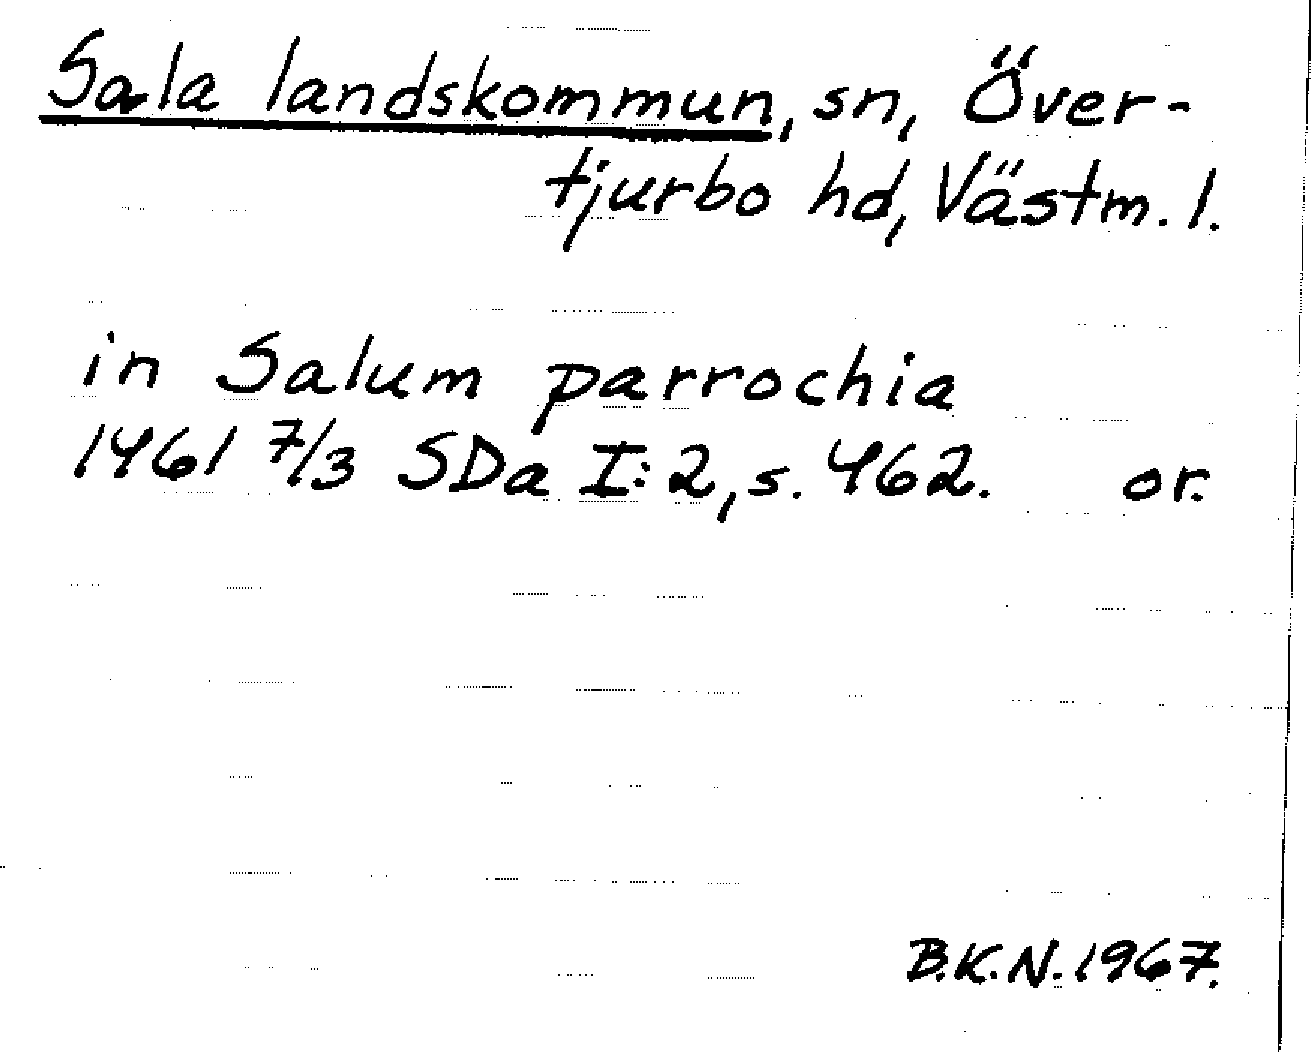 Sala landskommun, sn, Över-
tjurbo hd, Västm. l.
in Salum parrochia
1461 7/3 SDa I:2, s. 462. or.
B.K.N. 1967.